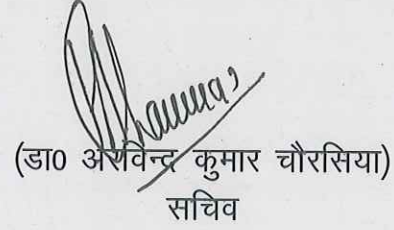 (डा0 अरविन्द कुमार चौरसिया)
सचिव